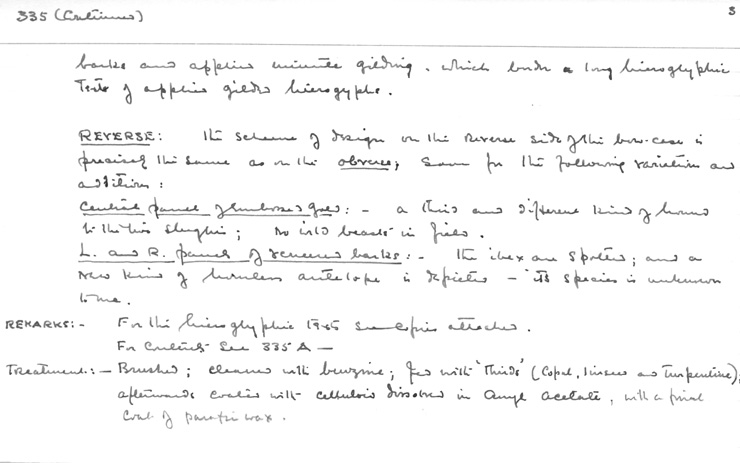 335 (Continued) 3
barks and applied minute gilding. which border a long hieroglyphic
Texts of applied gilded hieroglyphs.
REVERSE: The scheme of design on the reverse side of the bow-case is
precisely the same as on the obverse; save for the following varieties and
additions:
Central panel of embossed gold: - a third and different kind of hound
to the two sloughis; no wild beasts in field.
L. and R. panels of veneered barks: - The ibex are spotted; and a
new kind of hornless antelope is depicted - its species is unknown
to me.
REMARKS: - For the hieroglyphic texts see copies attached.
For Contents See 335 A -
Treatment: - Brushed; cleaned with benzine; fed with "Thirds" (Copal, linseed and Turpentine);
afterwards coated with celluloid dissolved in Amyl Acetate, with a final
coat of paraffin wax.